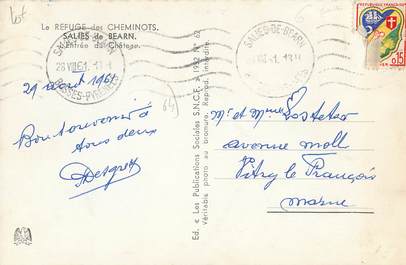 Le REFUGE des CHEMINOTS.
SALIES de BEARN.
L'Entrée du Château.
SALIES-DE-BEARN
28 VIII 61
BASSES-PYRENEES
SALIES-DE-BEARN
REPUBLIQUE FRANÇAISE
0,15
29 août 1961
64
Bon souvenir à
tous deux
Ed. « Les Publications Sociales S.N.C.F. » 1952 N° 62
Véritable photo au bromure. Reprod. interdite
Mr et Mme Losteter
avenue Moll
Vitry le François
Marne